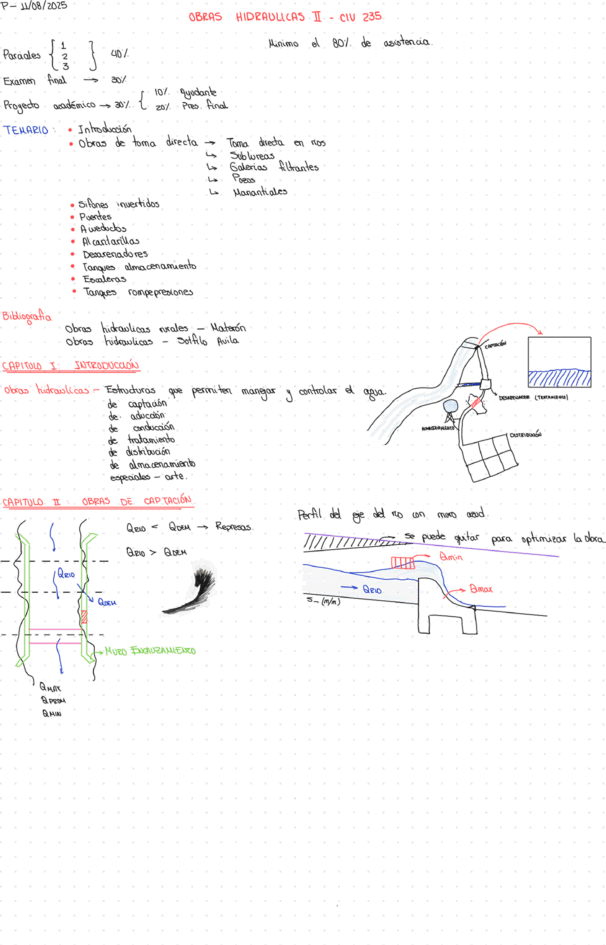 P- 11/08/2025
OBRAS HIDRAULICAS II - CIV 235
Minimo el 80% de asistencia.
Parciales { 1 2 3 } 40%
Examen final → 30%
Proyecto académico → 30% { 10% Ayudante
20% Pres. final
TEMARIO: • Introducción
• Obras de toma directa → Toma directa en rios
↳ Sublureas
↳ Galerias filtrantes
↳ Pozos
↳ Manantiales
• Sifones invertidos
• Puentes
• Aweductos
• Alcantarillas
• Desarenadores
• Tanques almacenamiento
• Escaleras
• Tanques rompepresiones
Bibliografía
Obras hidraulicas rurales - Materón
Obras hidraulicas - Sotilo Avila
CAPITULO I: INTRODUCCIÓN
Obras hidraulicas - Estructuras que permiten manejar y controlar el agua.
de captación
de aducción
de conducción
de tratamiento
de distribución
de almacenamiento
especiales - arte.
CAPTACIÓN
DESARENADOR (TRATAMIENTO)
ALMACENAMIENTO
DISTRIBUCIÓN
CAPITULO II: OBRAS DE CAPTACIÓN
QRIO < QDEM → Represas.
QRIO > QDEM
QRIO
QDEM
MURO ENCAUZAMIENTO
QMAX
QPROM
QMIN
Perfil del eje del rio con muro azud.
se puede quitar para optimizar la obra
Qmin
QRIO
Qmax
S - (m/m)